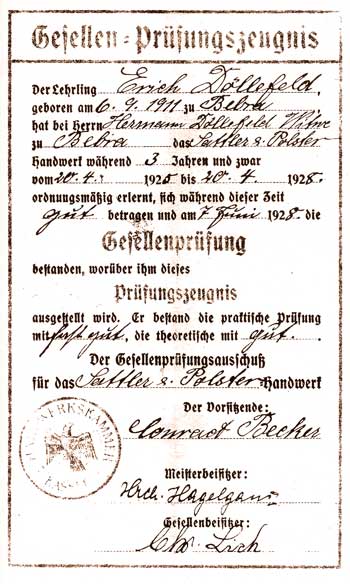 Gesellen-Prüfungszeugnis
Der Lehrling Erich Döllefeld,
geboren am 6. 9. 1911 zu Bebra
hat bei Herrn Hermann Döllefeld Witwe
zu Bebra das Sattler & Polster
Handwerk während 3 Jahren und zwar
vom 20. 4. 1925 bis 20. 4. 1928.
ordnungsmäßig erlernt, sich während dieser Zeit
gut betragen und am 7. Juni 1928 die
Gesellenprüfung
bestanden, worüber ihm dieses
Prüfungszeugnis
ausgestellt wird. Er bestand die praktische Prüfung
mit fast gut, die theoretische mit gut.
Der Gesellenprüfungsausschuß
für das Sattler & Polster Handwerk
Der Vorsitzende:
HANDWERKSKAMMER
CASSEL
Conrad Becker
Meisterbeisitzer:
Hrch. Hagelgans
Gesellenbeisitzer:
Chr. Lich